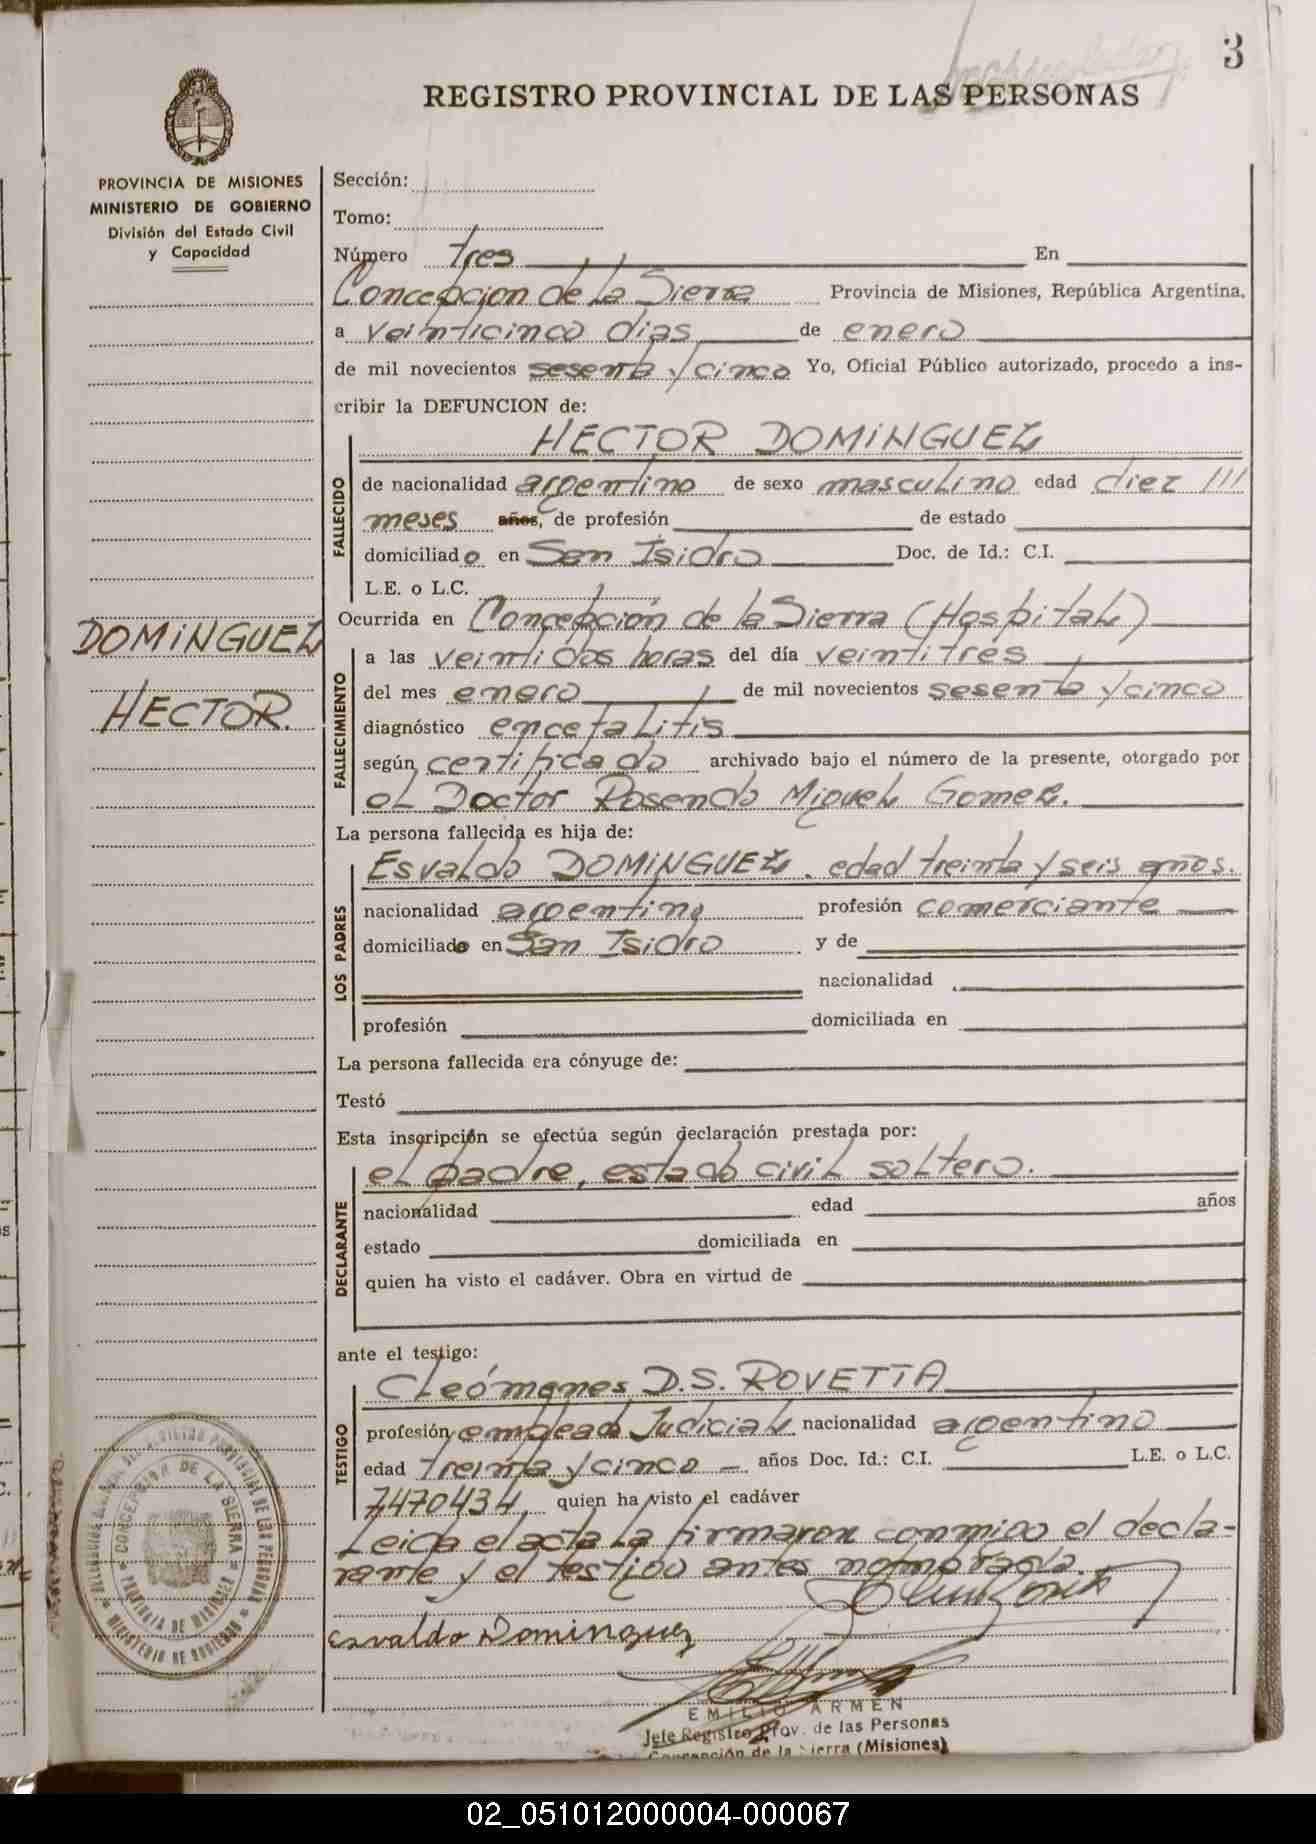 3
REGISTRO PROVINCIAL DE LAS PERSONAS
PROVINCIA DE MISIONES
MINISTERIO DE GOBIERNO
División del Estado Civil
y Capacidad
Sección:
Tomo:
Número tres En
Concepcion de la Sierra Provincia de Misiones, República Argentina,
a veinticinco dias de enero
de mil novecientos sesenta y cinco Yo, Oficial Público autorizado, procedo a ins-
cribir la DEFUNCION de:
HECTOR DOMINGUEZ
FALLECIDO
de nacionalidad argentino de sexo masculino edad diez ///
meses años, de profesión de estado
domiciliado en San Isidro Doc. de Id.: C.I.
L.E. o L.C.
DOMINGUEZ
HECTOR.
Ocurrida en Concepción de la Sierra (Hospital)
FALLECIMIENTO
a las veintidos horas del día veintitres
del mes enero de mil novecientos sesenta y cinco
diagnóstico encefalitis
según certificado archivado bajo el número de la presente, otorgado por
el Doctor Rosendo Miguel Gomez.
La persona fallecida es hija de:
LOS PADRES
Esvaldo DOMINGUEZ. edad treinta y seis años.
nacionalidad argentino profesión comerciante
domiciliado en San Isidro y de
nacionalidad
profesión domiciliada en
La persona fallecida era cónyuge de:
Testó
Esta inscripción se efectúa según declaración prestada por:
DECLARANTE
el padre, estado civil soltero.
nacionalidad edad años
estado domiciliada en
quien ha visto el cadáver. Obra en virtud de
ante el testigo:
TESTIGO
Cleómenes D.S. ROVETTA
profesión empleado Judicial nacionalidad argentino
edad treinta y cinco años Doc. Id.: C.I. L.E. o L.C.
7470434 quien ha visto el cadáver
Leida el acta la firmaron conmigo el decla-
rante y el testigo antes nombrado.
Esvaldo Dominguez
EMILIO ARMEN
Jefe Registro Prov. de las Personas
Concepción de la Sierra (Misiones)
CONCEPCION DE LA SIERRA
PROVINCIA DE MISIONES
MINISTERIO DE GOBIERNO
02_051012000004-000067